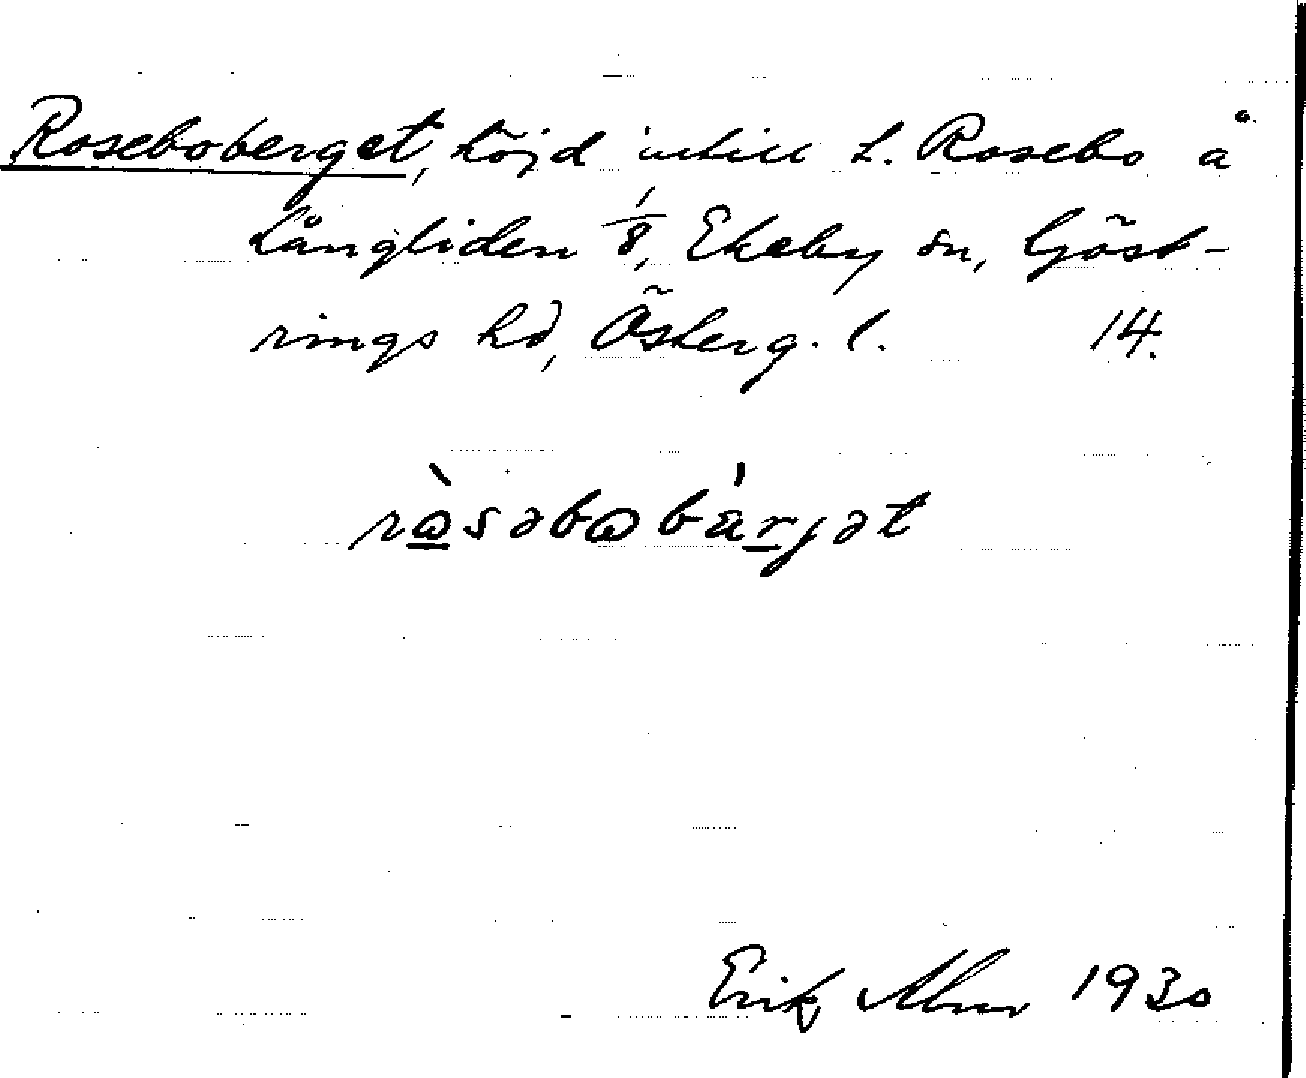 Roseboberget, höjd intill L. Rosebo å
Långliden 1/8, Ekeby sn, Göst-
rings hd, Österg. l. 14.
ròsəbobárjət
Erik Abm 1930